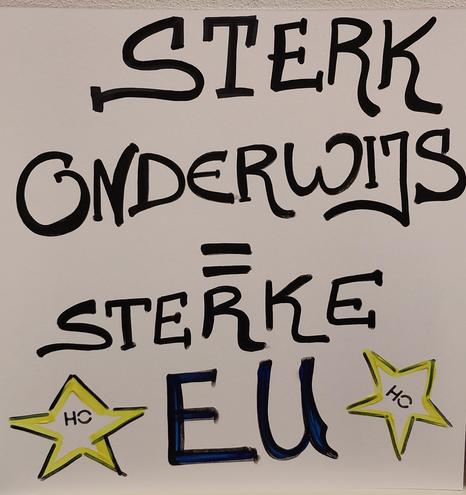 STERK
ONDERWIJS
=
STERKE
HO EU HO